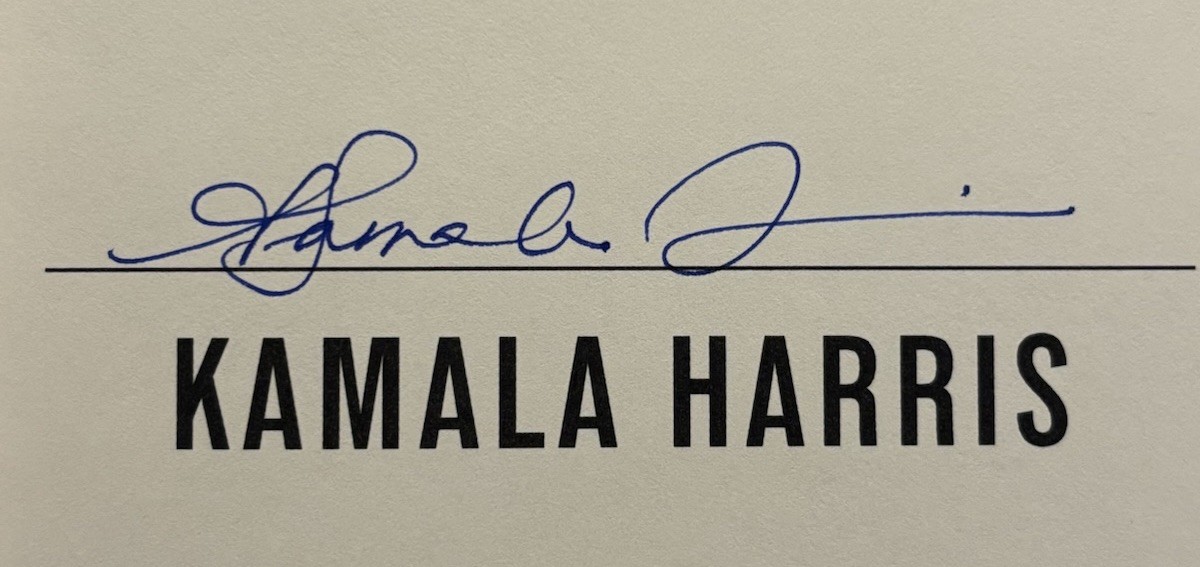 Kamala Harris
KAMALA HARRIS